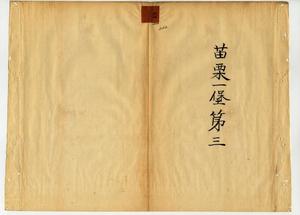 苗栗一堡第三